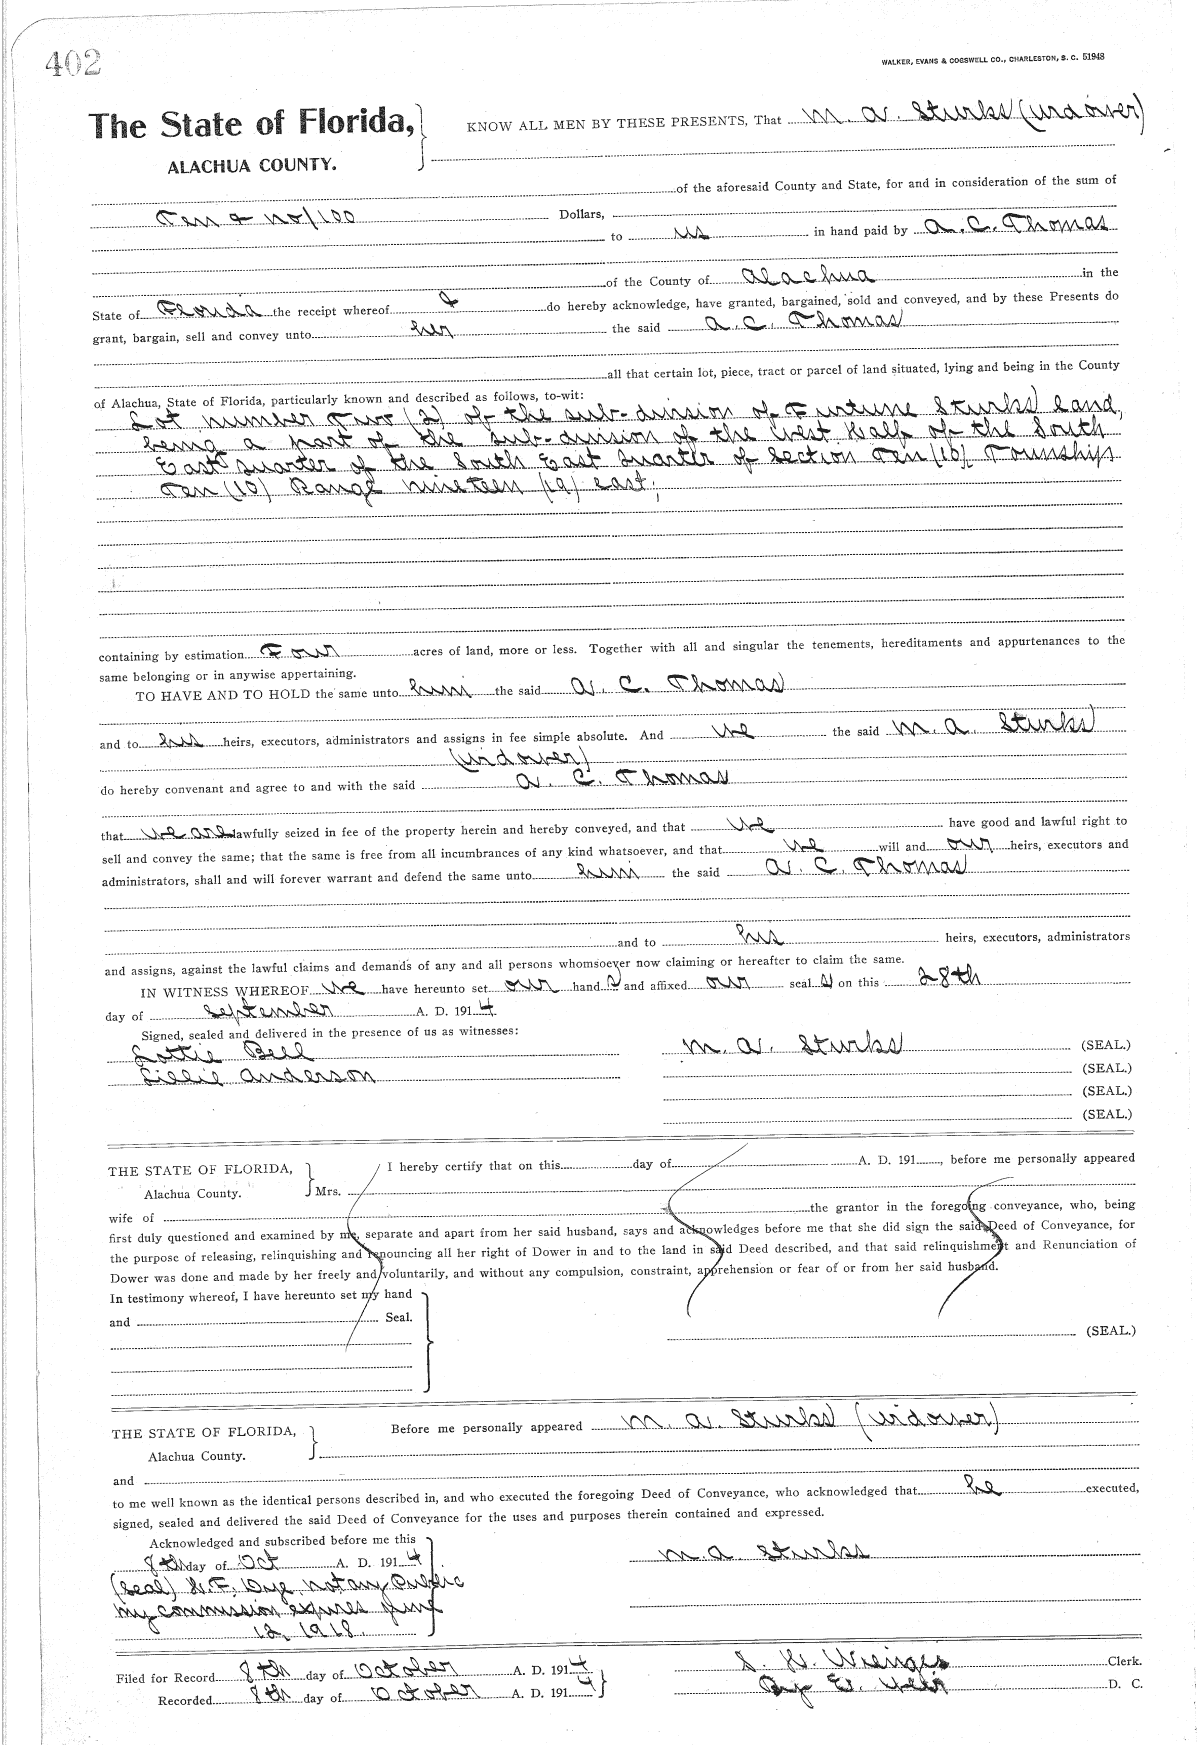 402
WALKER, EVANS & COGSWELL CO., CHARLESTON, S. C. 51948
The State of Florida,
ALACHUA COUNTY.
KNOW ALL MEN BY THESE PRESENTS, That M. A. Sturks (widower)
of the aforesaid County and State, for and in consideration of the sum of
Ten & no/100 Dollars,
to us in hand paid by A. C. Thomas
of the County of Alachua in the
State of Florida the receipt whereof & do hereby acknowledge, have granted, bargained, sold and conveyed, and by these Presents do
grant, bargain, sell and convey unto her the said A. C. Thomas
all that certain lot, piece, tract or parcel of land situated, lying and being in the County
of Alachua, State of Florida, particularly known and described as follows, to-wit:
Lot number Two (2) of the sub-division of Furtune Sturks land,
being a part of the sub-division of the West Half of the South
East Quarter of the South East Quarter of Section Ten (10) Township
Ten (10) Range nineteen (19) east;
containing by estimation Four acres of land, more or less. Together with all and singular the tenements, hereditaments and appurtenances to the
same belonging or in anywise appertaining.
TO HAVE AND TO HOLD the same unto him the said A. C. Thomas
and to his heirs, executors, administrators and assigns in fee simple absolute. And we the said M. A. Sturks
(widower)
do hereby convenant and agree to and with the said A. C. Thomas
that we are lawfully seized in fee of the property herein and hereby conveyed, and that we have good and lawful right to
sell and convey the same; that the same is free from all incumbrances of any kind whatsoever, and that we will and our heirs, executors and
administrators, shall and will forever warrant and defend the same unto him the said A. C. Thomas
and to his heirs, executors, administrators
and assigns, against the lawful claims and demands of any and all persons whomsoever now claiming or hereafter to claim the same.
IN WITNESS WHEREOF we have hereunto set our hand s and affixed our seal s on this 28th
day of September A. D. 1914.
Signed, sealed and delivered in the presence of us as witnesses:
Lottie Bell
Lillie Anderson
M. A. Sturks (SEAL.)
(SEAL.)
(SEAL.)
(SEAL.)
THE STATE OF FLORIDA,
Alachua County.
I hereby certify that on this day of A. D. 191 , before me personally appeared
Mrs.
wife of the grantor in the foregoing conveyance, who, being
first duly questioned and examined by me, separate and apart from her said husband, says and acknowledges before me that she did sign the said Deed of Conveyance, for
the purpose of releasing, relinquishing and renouncing all her right of Dower in and to the land in said Deed described, and that said relinquishment and Renunciation of
Dower was done and made by her freely and voluntarily, and without any compulsion, constraint, apprehension or fear of or from her said husband.
In testimony whereof, I have hereunto set my hand
and Seal.
(SEAL.)
THE STATE OF FLORIDA,
Alachua County.
Before me personally appeared M. A. Sturks (widower)
and
to me well known as the identical persons described in, and who executed the foregoing Deed of Conveyance, who acknowledged that he executed,
signed, sealed and delivered the said Deed of Conveyance for the uses and purposes therein contained and expressed.
Acknowledged and subscribed before me this
8th day of Oct A. D. 1914
M. A. Sturks
(Seal) Dye, Notary Public
My commission expires June
12, 1918.
Filed for Record 8th day of October A. D. 1914
S. H. Wienges Clerk.
Recorded 8th day of October A. D. 1914
By D. C.